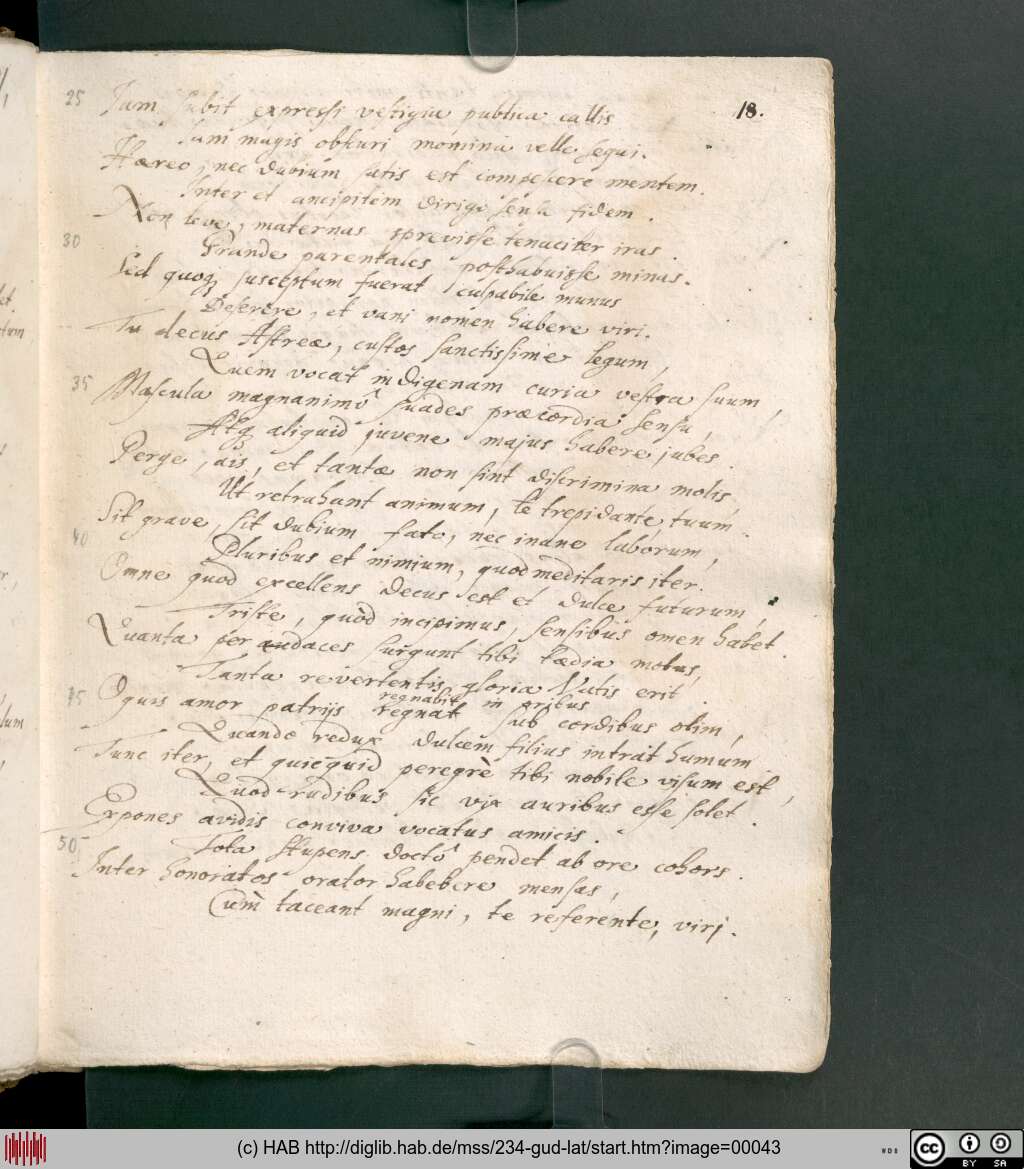 18.
25 Jam subit expressi vestigia publica callis
Jam magis obscuri momina velle sequi.
Haereo, nec dubium satis est compescere mentem.
Inter et ancipitem dirigi sensa fidem.
Non leve, maternas sprevisse tenaciter iras.
30 Grande parentales posthabuisse minas.
Sed quoq susceptum fuerat culpabile munus
Deserere, et vani nomen habere viri.
Tu decus Astreae, custos sanctissime legum,
Quem vocat indigenam curia vestra suum,
35 Mascula magnanimo suades praecordia sensu,
Atq aliquid juvene majus habere jubes.
Perge, ais, et tantae non sint discrimina molis,
Ut retrahant animum, te trepidante, tuum.
Sit grave, sit dubium fato, nec inane laborum,
40 Pluribus et nimium, quod meditaris iter.
Omne quod excellens decus est et dulce futurum,
Triste, quòd incipimus, sensibus omen habet.
Quanta per audaces surgunt tibi taedia motus,
Tanta revertentis gloria Vatis erit.
45 O quis amor patrijs regnat sub cordibus olim,
regnabit in artus
Quando redux dulcem filius intrat humum.
Tunc iter, et quicquid peregrè tibi nobile visum est,
Quod rudibus sic vix auribus esse solet.
Expones avidis conviva vocatus amicis.
50 Tota stupens docto pendet ab ore cohors.
Inter honoratos orator habebere mensas,
Cùm taceant magni, te referente, viri.
(c) HAB http://diglib.hab.de/mss/234-gud-lat/start.htm?image=00043
cc BY SA